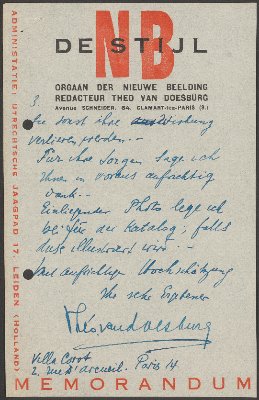 NB
DE STIJL
ORGAAN DER NIEUWE BEELDING
REDACTEUR THEO VAN DOESBURG
Avenue SCHNEIDER, 64, CLAMART-lez-PARIS (S.)
3.
sie sonst ihre Wirkung
verlieren werden.—
Für ihre Sorgen sage ich
Ihnen in voraus aufrichtig
Dank.—
Einliegender Photo lege ich
bei für den Katalog, falls
dies illustriert wird.—
Mit aufrichtiger Hochschätzung
Ihr sehr Ergebener
Théo van Doesburg
Villa Corot
2, rue d'Arcueil. Paris 14
MEMORANDUM
ADMINISTRATIE: UTRECHTSCHE JAAGPAD 17 LEIDEN (HOLLAND)